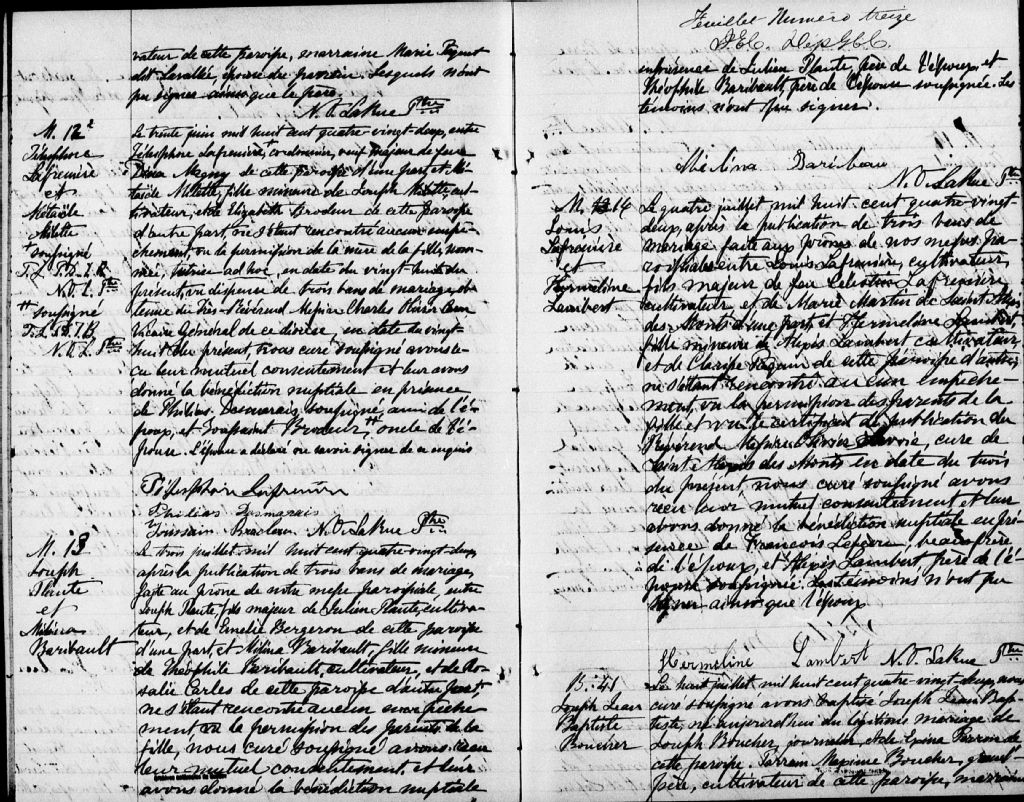 vateur de cette paroisse, marraine Marie
dit Lavallée, épouse du parrain. Lesquels n'ont
pu signer ainsi que le père.
N. O. LaRue Ptre
M. 12e
Télesphore
Lafrenière
et
Métaïde
Milette
+ soussigné
N. O. L. Ptre
++ soussigné
N. O. L. Ptre
Le trente juin mil huit cent quatre-vingt-deux, entre
Télesphore Lafrenière + cordonnier, veuf majeur de feue
Dina Magny de cette paroisse d'une part, et Mé-
taïde Milette, fille mineure de Joseph Milette, cul-
tivateur, et de Elizabeth Brodeur de cette paroisse
d'autre part, ne s'étant rencontré aucun empê-
chement, vu la permission de la mère de la fille, nom-
mée, tutrice ad hoc, en date du vingt-huit du
présent, vu dispense de trois bans de mariage, ob-
tenue du Très-Révérend Messire Charles Olivier Caron
Vicaire Général de ce diocèse, en date du vingt-
huit du présent, nous curé soussigné avons re-
çu leur mutuel consentement et leur avons
donné la bénédiction nuptiale en présence
de Philias Desmarais soussigné, ami de l'é-
poux, et Toussaint Brodeur ++, oncle de l'é-
pouse. L'épouse a déclaré ne savoir signer de ce enquis
Télesphore Lafrenière
Philias Desmarais
Toussain Brodeur N. O. LaRue Ptre
M. 13
Joseph
Plante
et
Mélina
Baribault
Le trois juillet mil huit cent quatre-vingt-deux,
après la publication de trois bans de mariage,
faite au prône de notre messe paroissiale, entre
Joseph Plante, fils majeur de Julien Plante, cultiva-
teur, et de Emélie Bergeron de cette paroisse
d'une part, et Mélina Baribault, fille mineure
de Théophile Baribault, cultivateur, et de Ro-
salie Carles de cette paroisse d'autre part,
ne s'étant rencontré aucun empêche-
ment, vu la permission des parents de la
fille, nous curé soussigné avons reçu
leur mutuel consentement et leur
avons donné la bénédiction nuptiale
Feuillet Numéro treize
Dep G.C.C.
en présence de Julien Plante, père de l'époux, et
Théophile Baribault, père de l'épouse soussignée. Les
témoins n'ont pu signer.
Mélina Baribeau
N. O. LaRue Ptre
M. 14
Louis
Lafrenière
et
Hermeline
Lambert
Le quatre juillet mil huit cent quatre-vingt-
deux, après la publication de trois bans de
mariage faite aux prônes de nos messes pa-
roissiales entre Louis Lafrenière, cultivateur,
fils majeur de feu Lafrenière
cultivateur et de Marie Martin de Saint Alexis
des Monts d'une part, et Hermeline Lambert,
fille mineure de Alexis Lambert cultivateur
et de Clarisse de cette paroisse d'autre,
ne s'étant rencontré aucun empêche-
ment, vu la permission des parents de la
fille et vu le certificat de publication du
Révérend Messire curé de
Saint Alexis des Monts en date du trois
du présent, nous curé soussigné avons
reçu leur mutuel consentement et leur
avons donné la bénédiction nuptiale en pré-
sence de François beau-frère
de l'époux, et Alexis Lambert, père de l'é-
pouse soussignée. Les témoins n'ont pu
signer ainsi que l'époux
Hermeline Lambert N. O. LaRue Ptre
B. 41
Joseph Jean
Baptiste
Boucher
Le huit juillet mil huit cent quatre-vingt-deux, nous
curé soussigné avons baptisé Joseph Jean Bap-
tiste, né aujourd'hui du légitime mariage de
Joseph Boucher, journalier et de de
cette paroisse. Parrain Maxime Boucher, grand-
père, cultivateur de cette paroisse, marraine